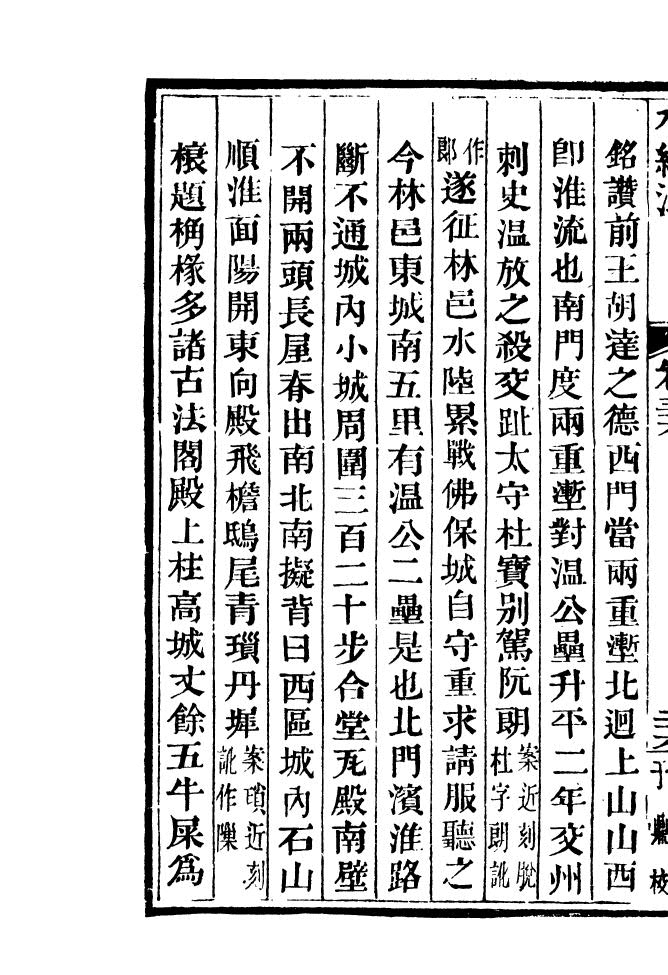 銘讚前王胡達之德西門當兩重壍北迴上山山西
卽淮流也南門度兩重壍對温公壘升平二年交州
刺史温放之殺交趾太守杜寶别駕阮朗案近刻脫杜字朗訛
作郞遂征林邑水陸累戰佛保城自守重求請服聽之
今林邑東城南五里有温公二壘是也北門濱淮路
斷不通城內小城周圍三百二十步合堂瓦殿南壁
不開兩頭長屋脊出南北南擬背日西區城內石山
順淮面陽開東向殿飛檐鴟尾青瑣丹墀案瑣近刻訛作璅
榱題桷椽多諸古法閣殿上柱高城丈餘五牛屎爲